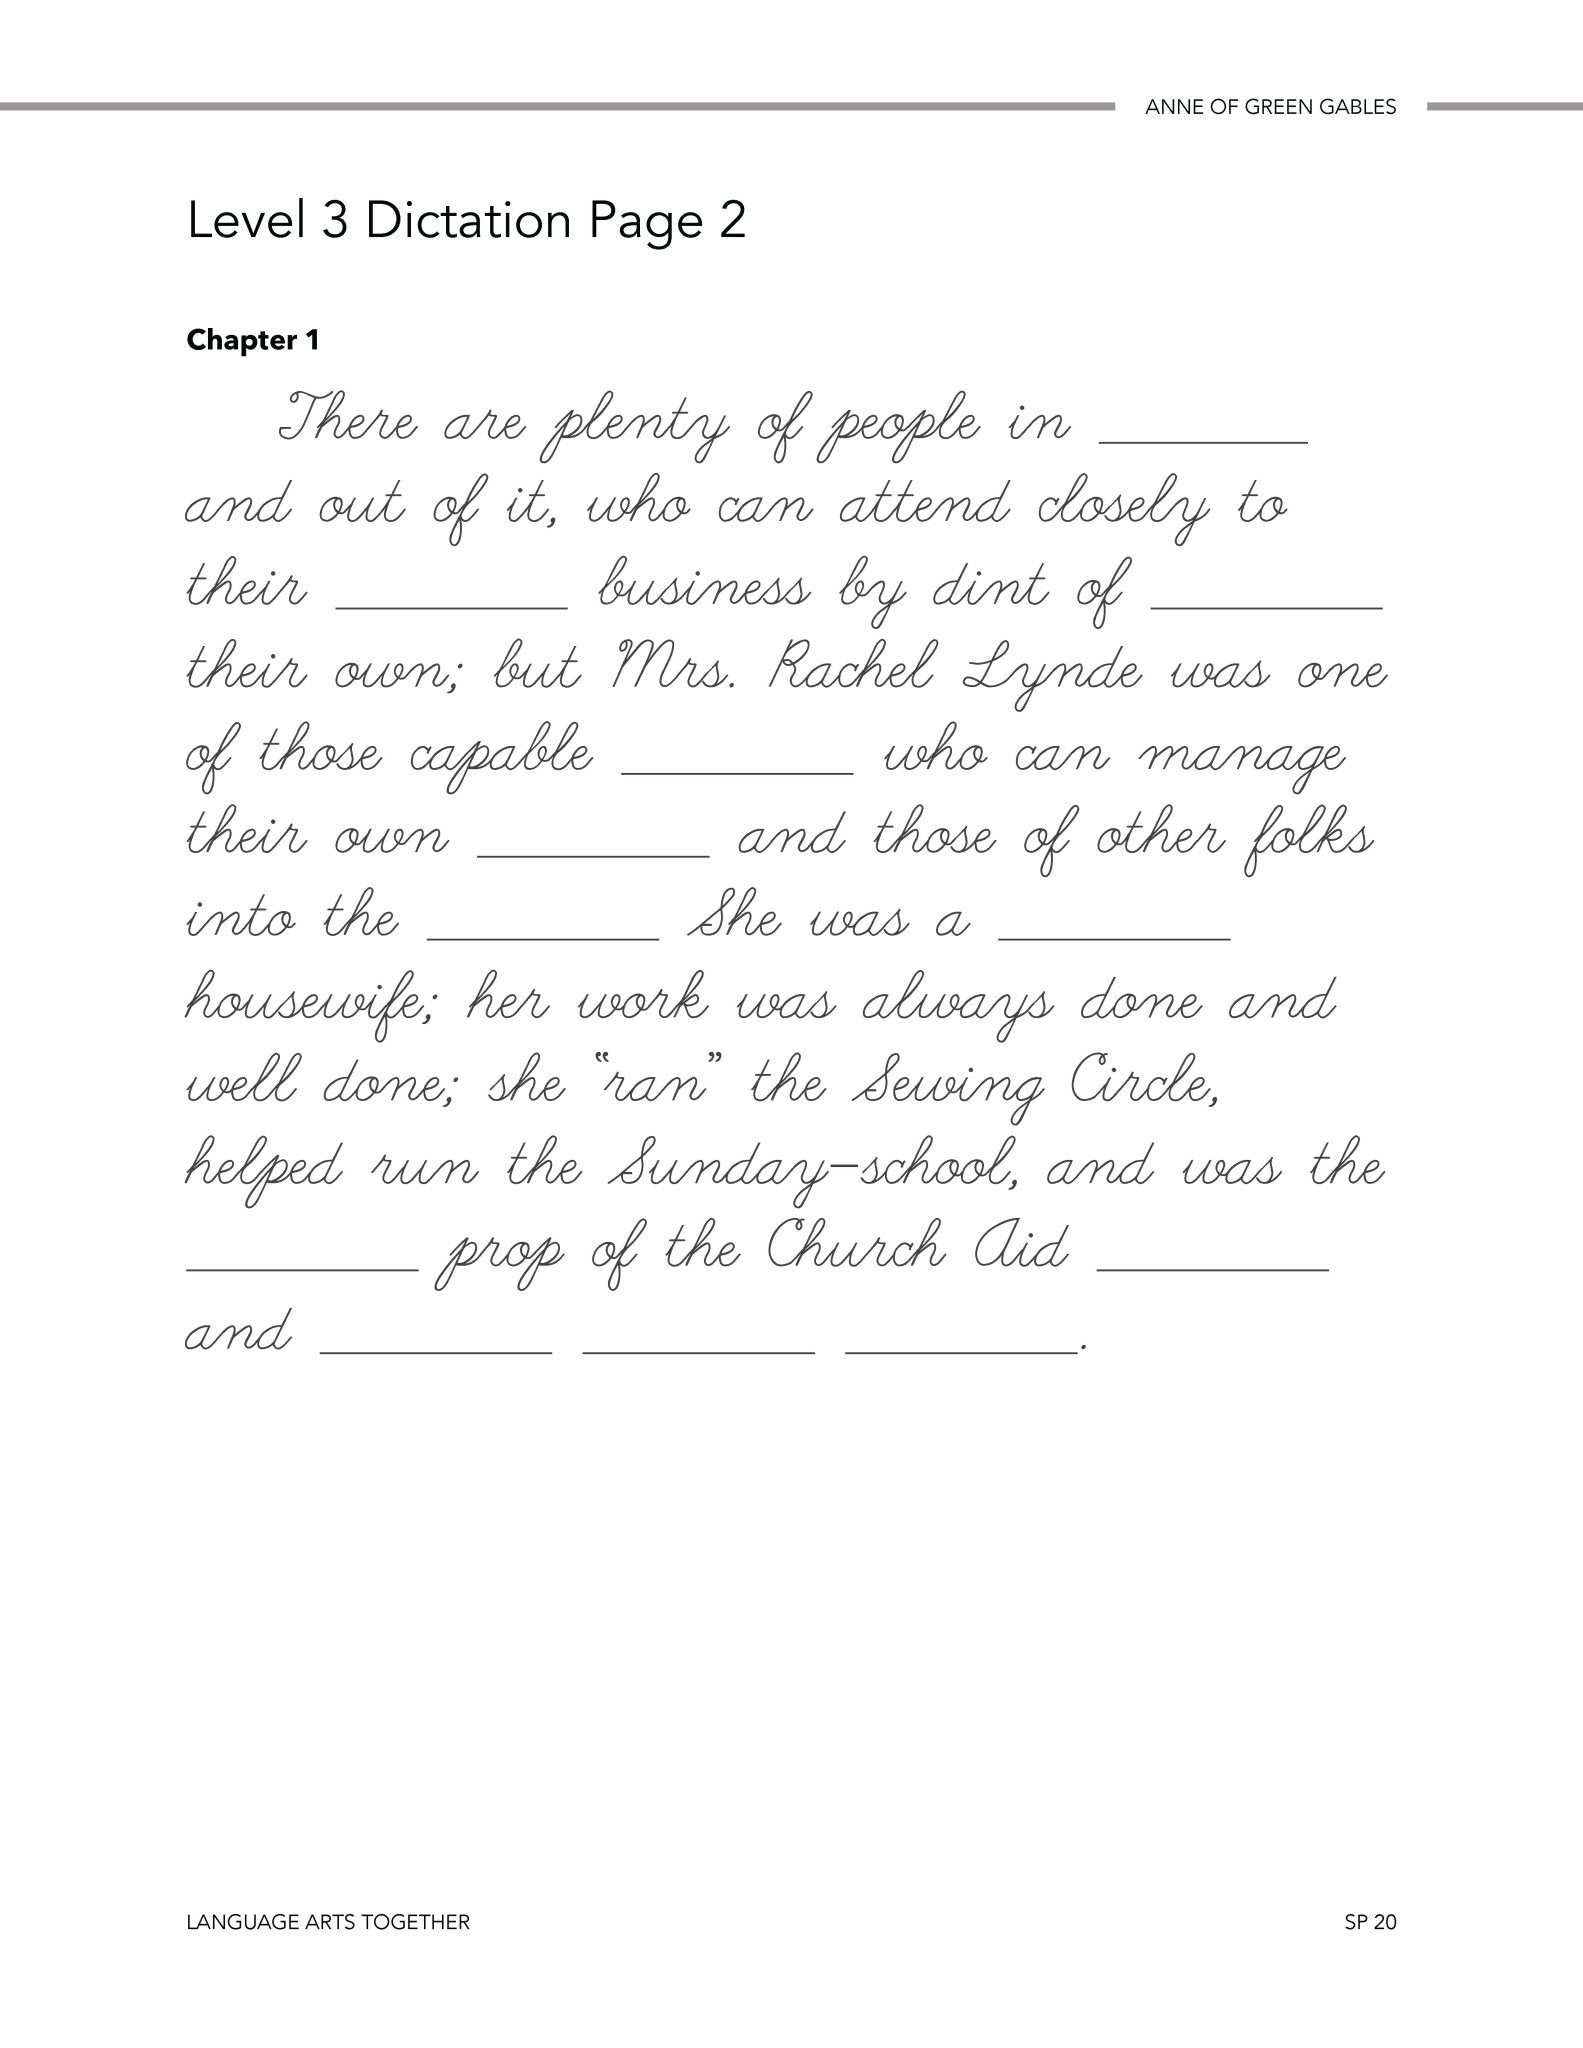 ANNE OF GREEN GABLES
Level 3 Dictation Page 2
Chapter 1
There are plenty of people in ________
and out of it, who can attend closely to
their ________ business by dint of ________
their own; but Mrs. Rachel Lynde was one
of those capable ________ who can manage
their own ________ and those of other folks
into the ________ She was a ________
housewife; her work was always done and
well done; she “ran” the Sewing Circle,
helped run the Sunday-school, and was the
________ prop of the Church Aid ________
and ________ ________ ________.
LANGUAGE ARTS TOGETHER
SP 20